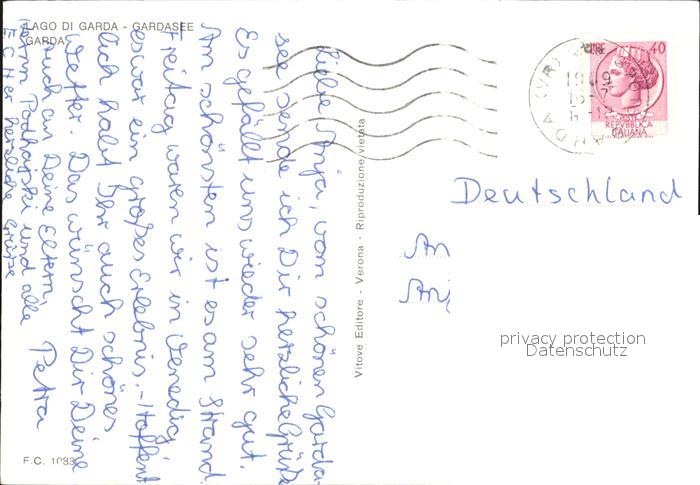 LAGO DI GARDA - GARDASEE
GARDA
Liebe Anja, vom schönen Garda-
see sende ich Dir herzliche Grüße
Es gefällt uns wieder sehr gut.
Am schönsten ist es am Strand.
Freitag waren wir in Venedig,
es war ein großes Erlebnis. - Hoffent
lich habt Ihr auch schönes
Wetter. Das wünscht Dir Deine
Petra
auch an Deine Eltern,
Podhajski und alle
herzliche Grüße
F.C. 1033
Vitove Editore - Verona - Riproduzione vietata
40
REPVBBLICA
ITALIANA
Deutschland
An
Anj
privacy protection
Datenschutz